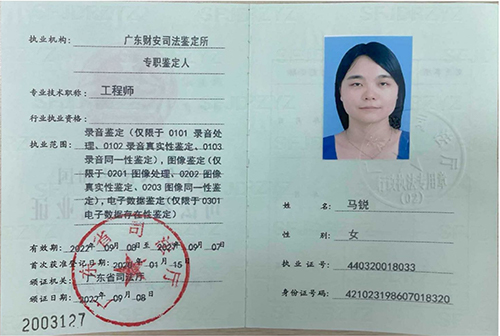 执业机构： 广东财安司法鉴定所
专职鉴定人
专业技术职称： 工程师
行业执业资格：
执业范围： 录音鉴定（仅限于 0101 录音处
理、0102 录音真实性鉴定、0103
录音同一性鉴定），图像鉴定（仅
限于 0201 图像处理、0202 图像
真实性鉴定、0203 图像同一性鉴
定），电子数据鉴定（仅限于 0301
电子数据存在性鉴定）
有效期： 2022年 09月 08日至 2027年 09月 07日
首次获准登记日期： 2020年 01月 15日
颁证机关： 广东省司法厅
颁证日期： 2022年 09月 08日
广东省司法厅
2003127
姓 名： 马锐
性 别： 女
执业证号： 440320018033
身份证号码： 421023198607018320